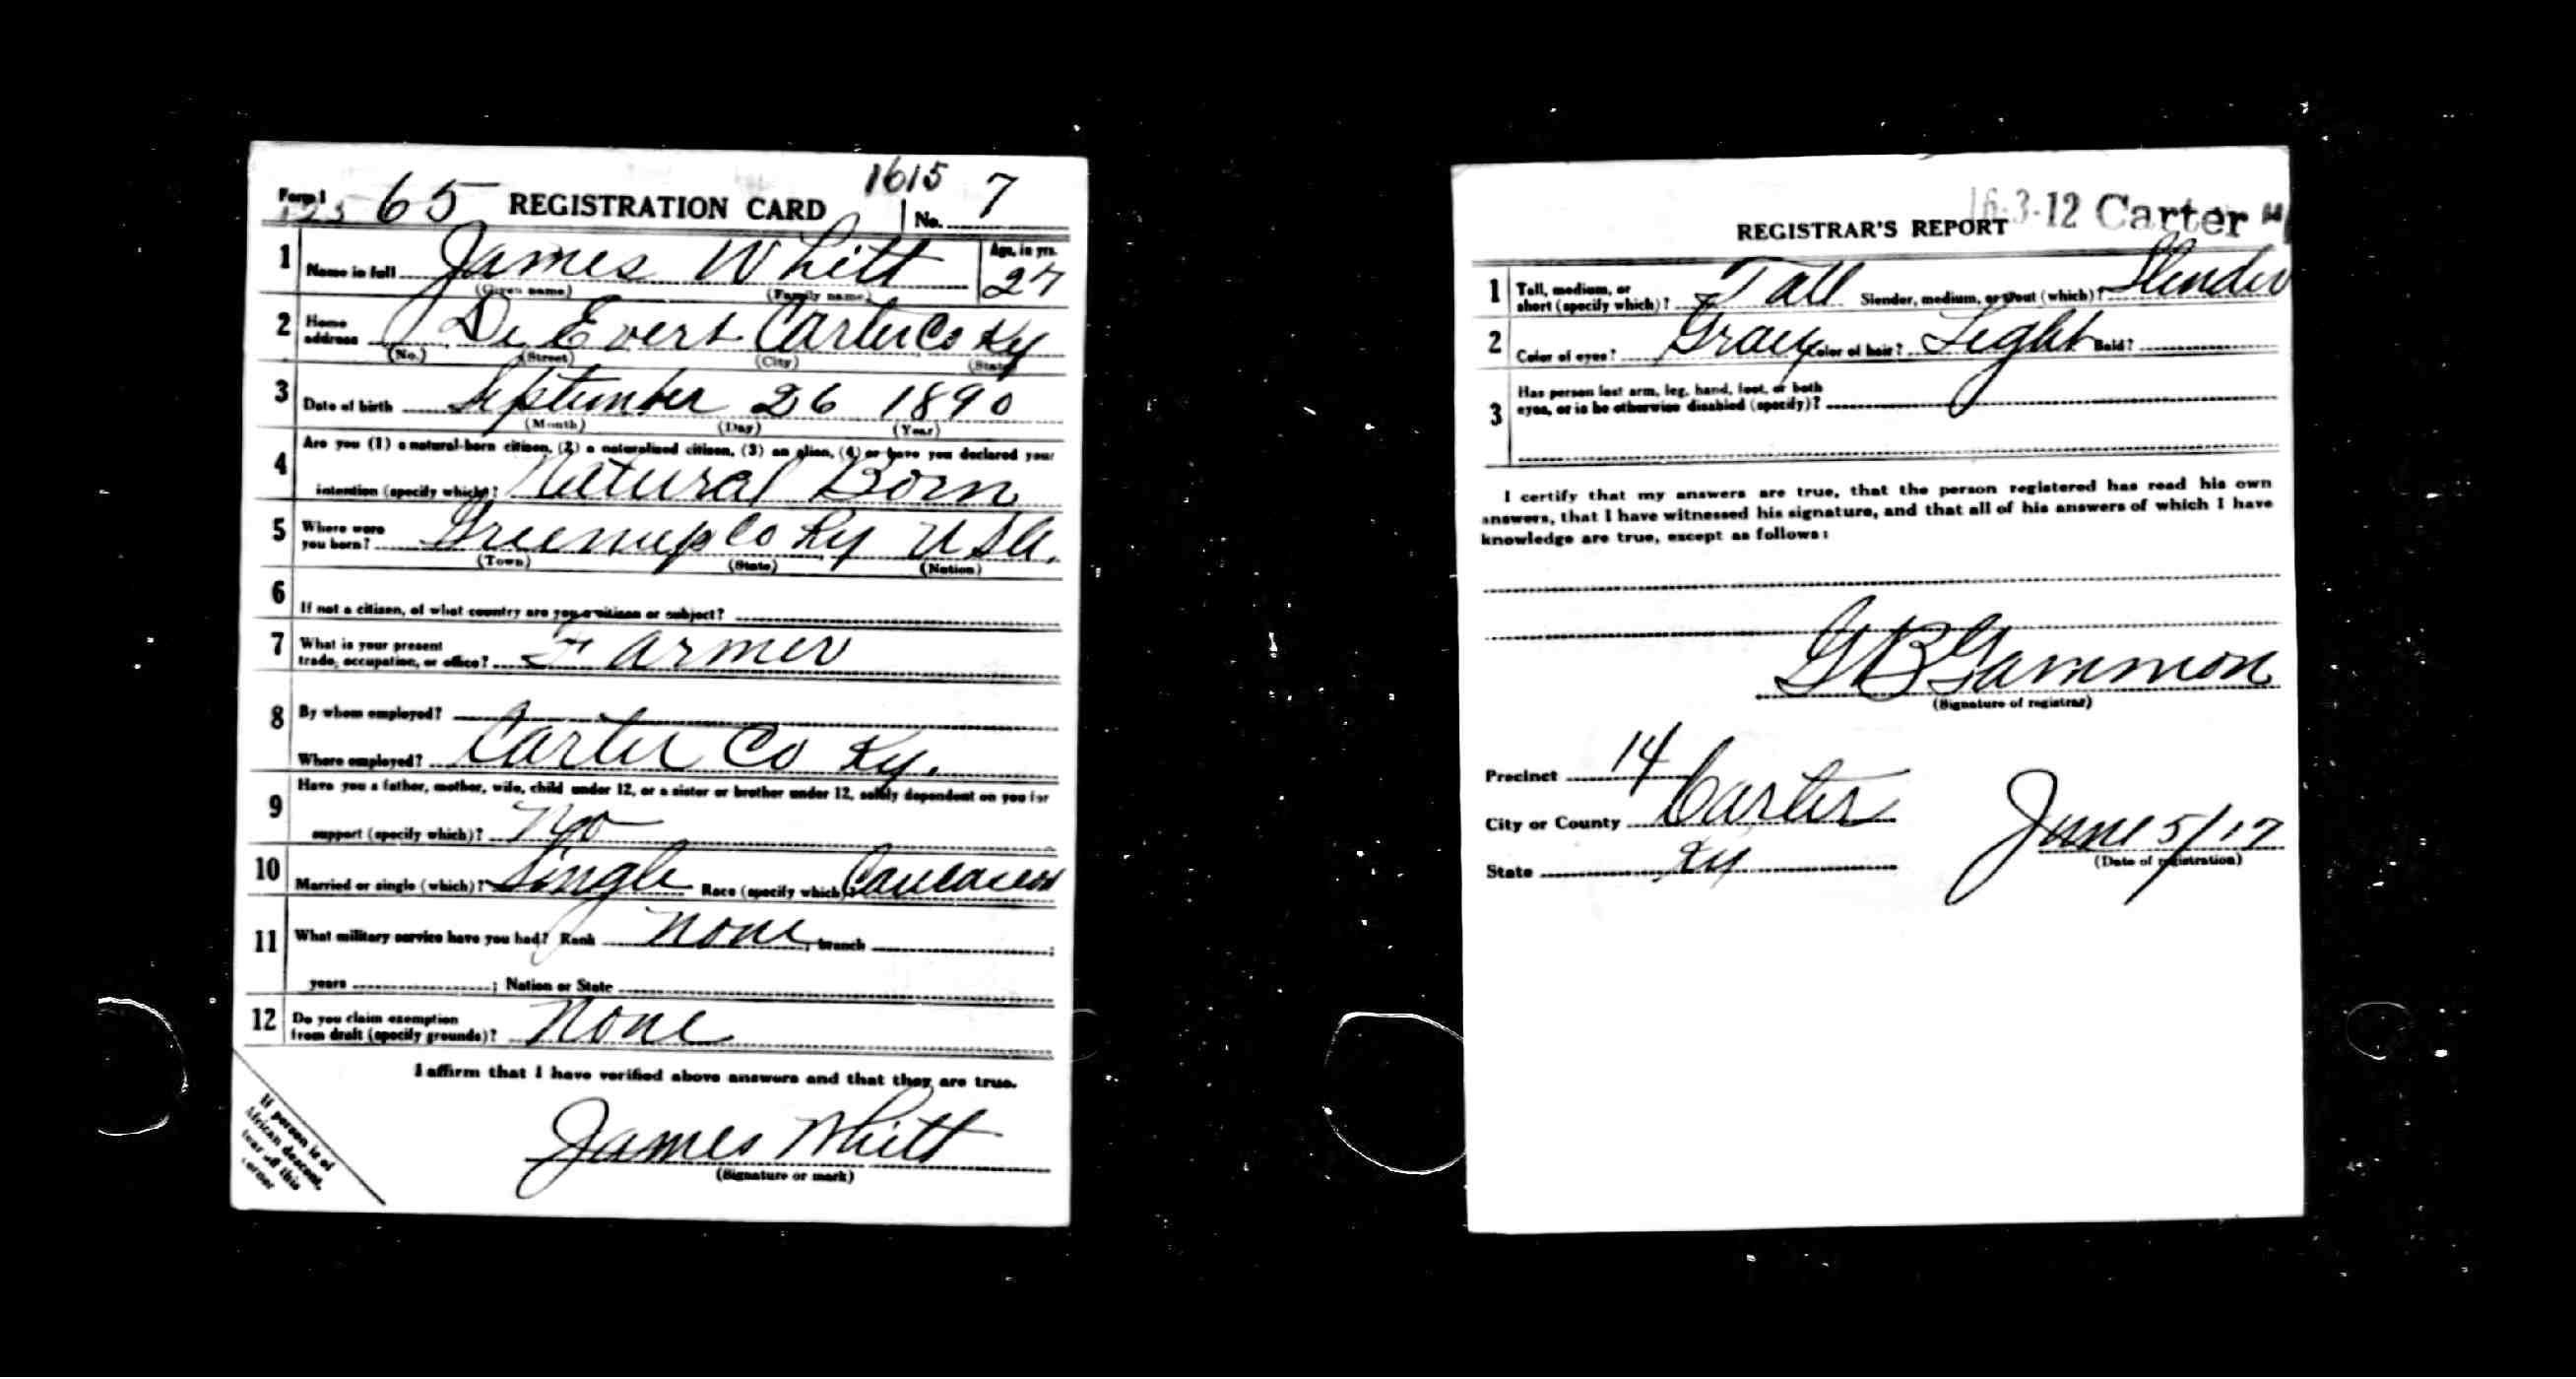 Form 1 65 REGISTRATION CARD 1615 No. 7
1 Name in full James Whitt Age, in yrs. 27
(Given name) (Family name)
2 Home address De Evert Carter Co Ky
(No.) (Street) (City) (State)
3 Date of birth September 26 1890
(Month) (Day) (Year)
4 Are you (1) a natural-born citizen, (2) a naturalized citizen, (3) an alien, (4) or have you declared your
intention (specify which)? Natural Born
5 Where were you born? Greenup Co Ky USA
(Town) (State) (Nation)
6 If not a citizen, of what country are you a citizen or subject?
7 What is your present trade, occupation, or office? Farmer
8 By whom employed?
Where employed? Carter Co Ky.
9 Have you a father, mother, wife, child under 12, or a sister or brother under 12, solely dependent on you for
support (specify which)? No
10 Married or single (which)? Single Race (specify which)? Caucasian
11 What military service have you had? Rank None, branch ;
years ; Nation or State
12 Do you claim exemption from draft (specify grounds)? None
I affirm that I have verified above answers and that they are true.
James Whitt
(Signature or mark)
If person is of
African descent,
tear off this
corner
16-3-12 Carter
REGISTRAR'S REPORT
1 Tall, medium, or short (specify which)? Tall Slender, medium, or stout (which)? Slender
2 Color of eyes? Gray Color of hair? Light Bald?
3 Has person lost arm, leg, hand, foot, or both
eyes, or is he otherwise disabled (specify)?
I certify that my answers are true, that the person registered has read his own
answers, that I have witnessed his signature, and that all of his answers of which I have
knowledge are true, except as follows:
G B Gammon
(Signature of registrar)
Precinct 14
City or County Carter
State Ky
June 5/17
(Date of registration)